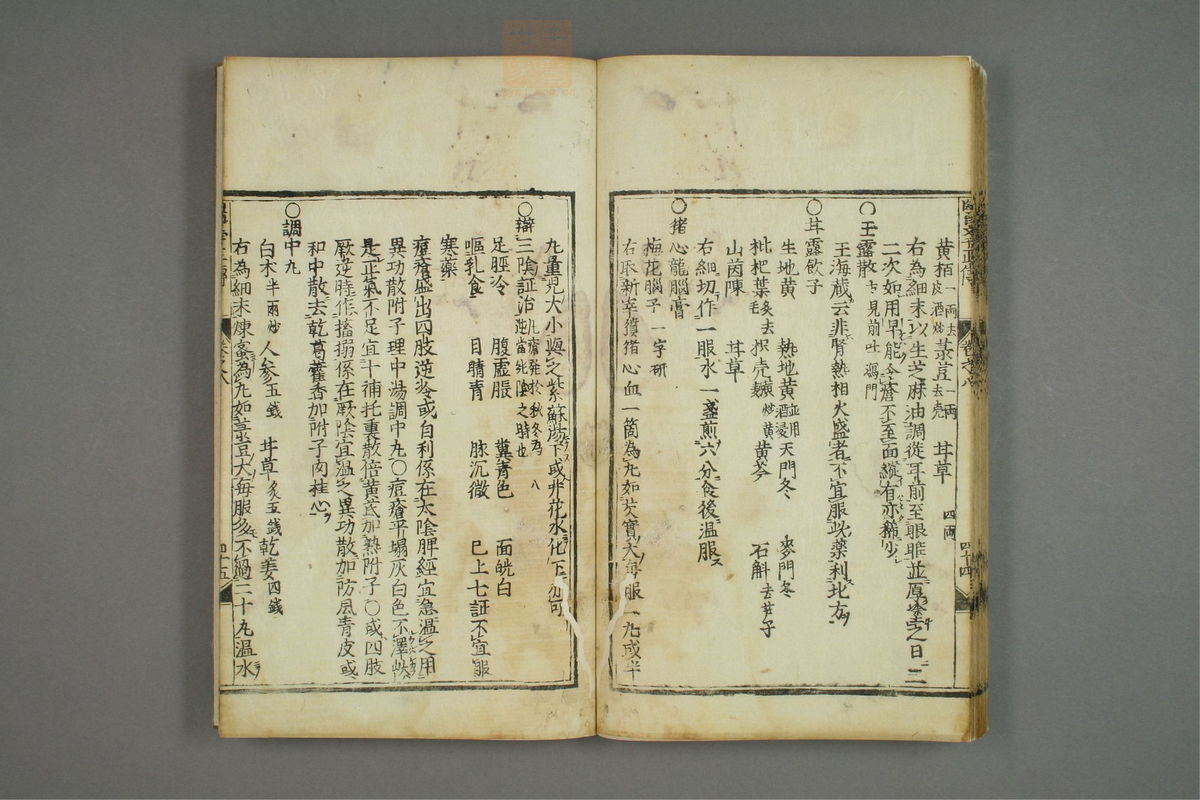 黄栢一兩去皮酒炒 菉豆一兩去壳 甘草四兩
右為細末以生芝麻油調從耳前至眼眶並厚塗之日二
二次如用早能令瘡不至面縱有亦稀少
〇王露散方見前吐瀉門
王海藏云非腎熱相火盛者不宜服此藥利北方
〇甘露飲子
生地黄 熟地黄並用酒浸 天門冬 麥門冬
枇杷葉炙去毛 枳壳麩炒 黄芩 石斛去芦子
山茵陳 甘草
右細切作一服水一盞煎六分食後温服
〇猪心龍腦膏
梅花腦子一字研
右取新宰猪心血一箇為丸如芡實大每服一丸或半
四十四
丸量児大小與之紫蘇湯下或井花水化下亦可
〇辯三陰証治凡瘡發於秋冬為逆當純陰之時也 八
足脛冷 腹虛脹 糞青色 面㿠白
嘔乳食 目睛青 脉沉微 已上七証不宜服
寒藥
痘瘡盛出四肢逆冷或自利係在太陰脾經宜急温之用
異功散附子理中湯調中丸〇痘瘡平塌灰白色不澤
是正氣不足宜十補托裏散倍黄芪加熟附子〇或四肢
厥逆時作搐搦係在厥陰宜温之異功散加防風青皮或
和中散去乾葛藿香加附子肉桂心
〇調中丸
白木半兩炒 人参五錢 甘草炙五錢 乾姜四錢
右為細末煉蜜為丸如豆大每服多不過二十丸温水
四十五